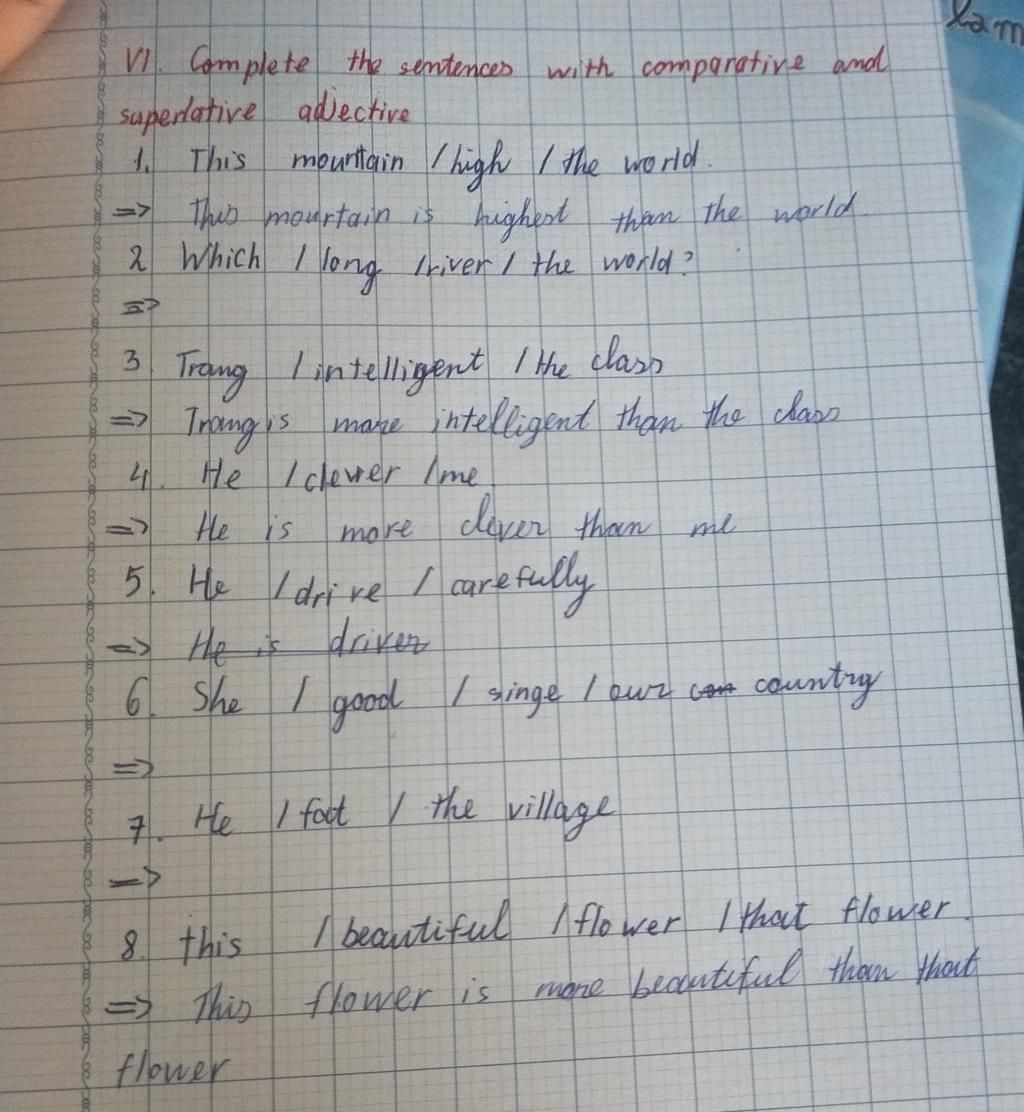 lam
VI. Complete the sentences with comparative and
superlative adjective
1. This mountain / high / the world.
=> This mountain is highest than the world.
2 Which / long / river / the world?
=>
3 Trang / intelligent / the class
=> Trang is more intelligent than the class
4. He / clever / me.
=> He is more clever than me
5. He / drive / carefully
=> He is driver
6. She / good / singe / our con country
=>
7. He / fat / the village
=>
8. this / beautiful / flower / that flower.
=> This flower is more beautiful than that
flower